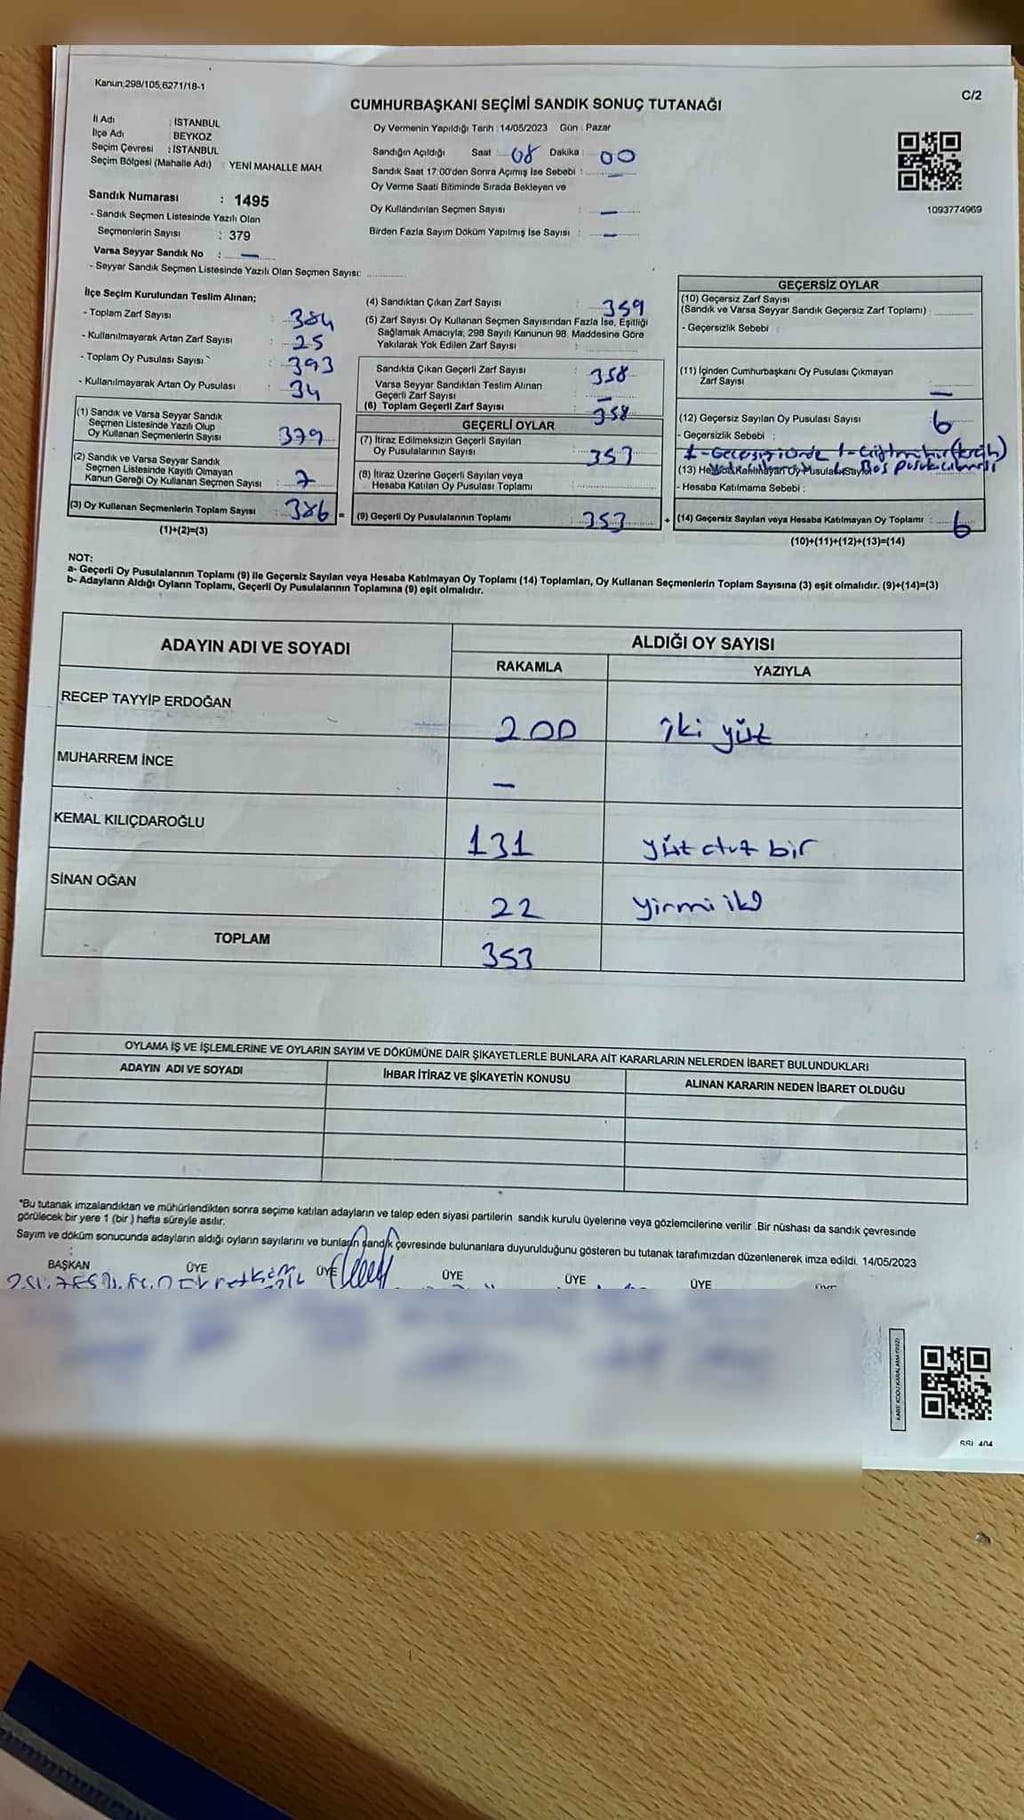 Kanun:298/105,6271/18-1
C/2
CUMHURBAŞKANI SEÇİMİ SANDIK SONUÇ TUTANAĞI
İl Adı : İSTANBUL
İlçe Adı BEYKOZ
Seçim Çevresi : İSTANBUL
Seçim Bölgesi (Mahalle Adı) : YENİ MAHALLE MAH.
Sandık Numarası : 1495
- Sandık Seçmen Listesinde Yazılı Olan
Seçmenlerin Sayısı : 379
Varsa Seyyar Sandık No : —
- Seyyar Sandık Seçmen Listesinde Yazılı Olan Seçmen Sayısı:
Oy Vermenin Yapıldığı Tarih : 14/05/2023 Gün : Pazar
Sandığın Açıldığı Saat : 08 Dakika : 00
Sandık Saat 17:00'den Sonra Açımış İse Sebebi : —
Oy Verme Saati Bitiminde Sırada Bekleyen ve
Oy Kullandırılan Seçmen Sayısı : —
Birden Fazla Sayım Döküm Yapılmış İse Sayısı : —
1093774969
İlçe Seçim Kurulundan Teslim Alınan;
- Toplam Zarf Sayısı : 384
- Kullanılmayarak Artan Zarf Sayısı : 25
- Toplam Oy Pusulası Sayısı : 393
- Kullanılmayarak Artan Oy Pusulası : 34
(1) Sandık ve Varsa Seyyar Sandık
Seçmen Listesinde Yazılı Olup
Oy Kullanan Seçmenlerin Sayısı : 379
(2) Sandık ve Varsa Seyyar Sandık
Seçmen Listesinde Kayıtlı Olmayan
Kanun Gereği Oy Kullanan Seçmen Sayısı : 7
(3) Oy Kullanan Seçmenlerin Toplam Sayısı : 386 =
(1)+(2)=(3)
(4) Sandıktan Çıkan Zarf Sayısı : 359
(5) Zarf Sayısı Oy Kullanan Seçmen Sayısından Fazla İse, Eşitliği
Sağlamak Amacıyla, 298 Sayılı Kanunun 98. Maddesine Göre
Yakılarak Yok Edilen Zarf Sayısı :
Sandıkta Çıkan Geçerli Zarf Sayısı : 358
Varsa Seyyar Sandıktan Teslim Alınan
Geçerli Zarf Sayısı : —
(6) Toplam Geçerli Zarf Sayısı : 358
GEÇERLİ OYLAR
(7) İtiraz Edilmeksizin Geçerli Sayılan
Oy Pusulalarının Sayısı : 353
(8) İtiraz Üzerine Geçerli Sayılan veya
Hesaba Katılan Oy Pusulası Toplamı :
(9) Geçerli Oy Pusulalarının Toplamı : 353 +
GEÇERSİZ OYLAR
(10) Geçersiz Zarf Sayısı
(Sandık ve Varsa Seyyar Sandık Geçersiz Zarf Toplamı) :
- Geçersizlik Sebebi :
(11) İçinden Cumhurbaşkanı Oy Pusulası Çıkmayan
Zarf Sayısı : —
(12) Geçersiz Sayılan Oy Pusulası Sayısı : 6
- Geçersizlik Sebebi :
(13) Hesaba Katılmayan Oy Pusulası Sayısı
- Hesaba Katılmama Sebebi :
(14) Geçersiz Sayılan veya Hesaba Katılmayan Oy Toplamı : 6
(10)+(11)+(12)+(13)=(14)
NOT:
a- Geçerli Oy Pusulalarının Toplamı (9) ile Geçersiz Sayılan veya Hesaba Katılmayan Oy Toplamı (14) Toplamları, Oy Kullanan Seçmenlerin Toplam Sayısına (3) eşit olmalıdır. (9)+(14)=(3)
b- Adayların Aldığı Oyların Toplamı, Geçerli Oy Pusulalarının Toplamına (9) eşit olmalıdır.
ADAYIN ADI VE SOYADI ALDIĞI OY SAYISI
RAKAMLA YAZIYLA
RECEP TAYYİP ERDOĞAN 200 iki yüz
MUHARREM İNCE —
KEMAL KILIÇDAROĞLU 131 yüz otuz bir
SİNAN OĞAN 22 yirmi iki
TOPLAM 353
OYLAMA İŞ VE İŞLEMLERİNE VE OYLARIN SAYIM VE DÖKÜMÜNE DAİR ŞİKAYETLERLE BUNLARA AİT KARARLARIN NELERDEN İBARET BULUNDUKLARI
ADAYIN ADI VE SOYADI İHBAR İTİRAZ VE ŞİKAYETİN KONUSU ALINAN KARARIN NEDEN İBARET OLDUĞU
*Bu tutanak imzalandıktan ve mühürlendikten sonra seçime katılan adayların ve talep eden siyasi partilerin sandık kurulu üyelerine veya gözlemcilerine verilir. Bir nüshası da sandık çevresinde
görülecek bir yere 1 (bir) hafta süreyle asılır.
Sayım ve döküm sonucunda adayların aldığı oyların sayılarını ve bunların sandık çevresinde bulunanlara duyurulduğunu gösteren bu tutanak tarafımızdan düzenlenerek imza edildi. 14/05/2023
BAŞKAN ÜYE ÜYE ÜYE ÜYE ÜYE